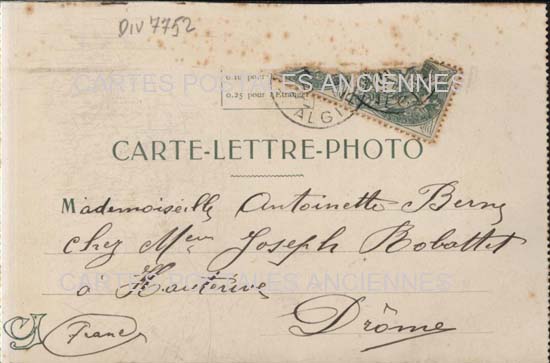 DIV 7752
CARTES POSTALES ANCIENNES
0.10 pour
0.25 pour l'Etranger
ALG
CARTE-LETTRE-PHOTO
Mademoiselle Antoinette Berne
chez Mr Joseph Robattet
CARTES POSTALES ANCIENNES
à Hauterive
Drôme
France